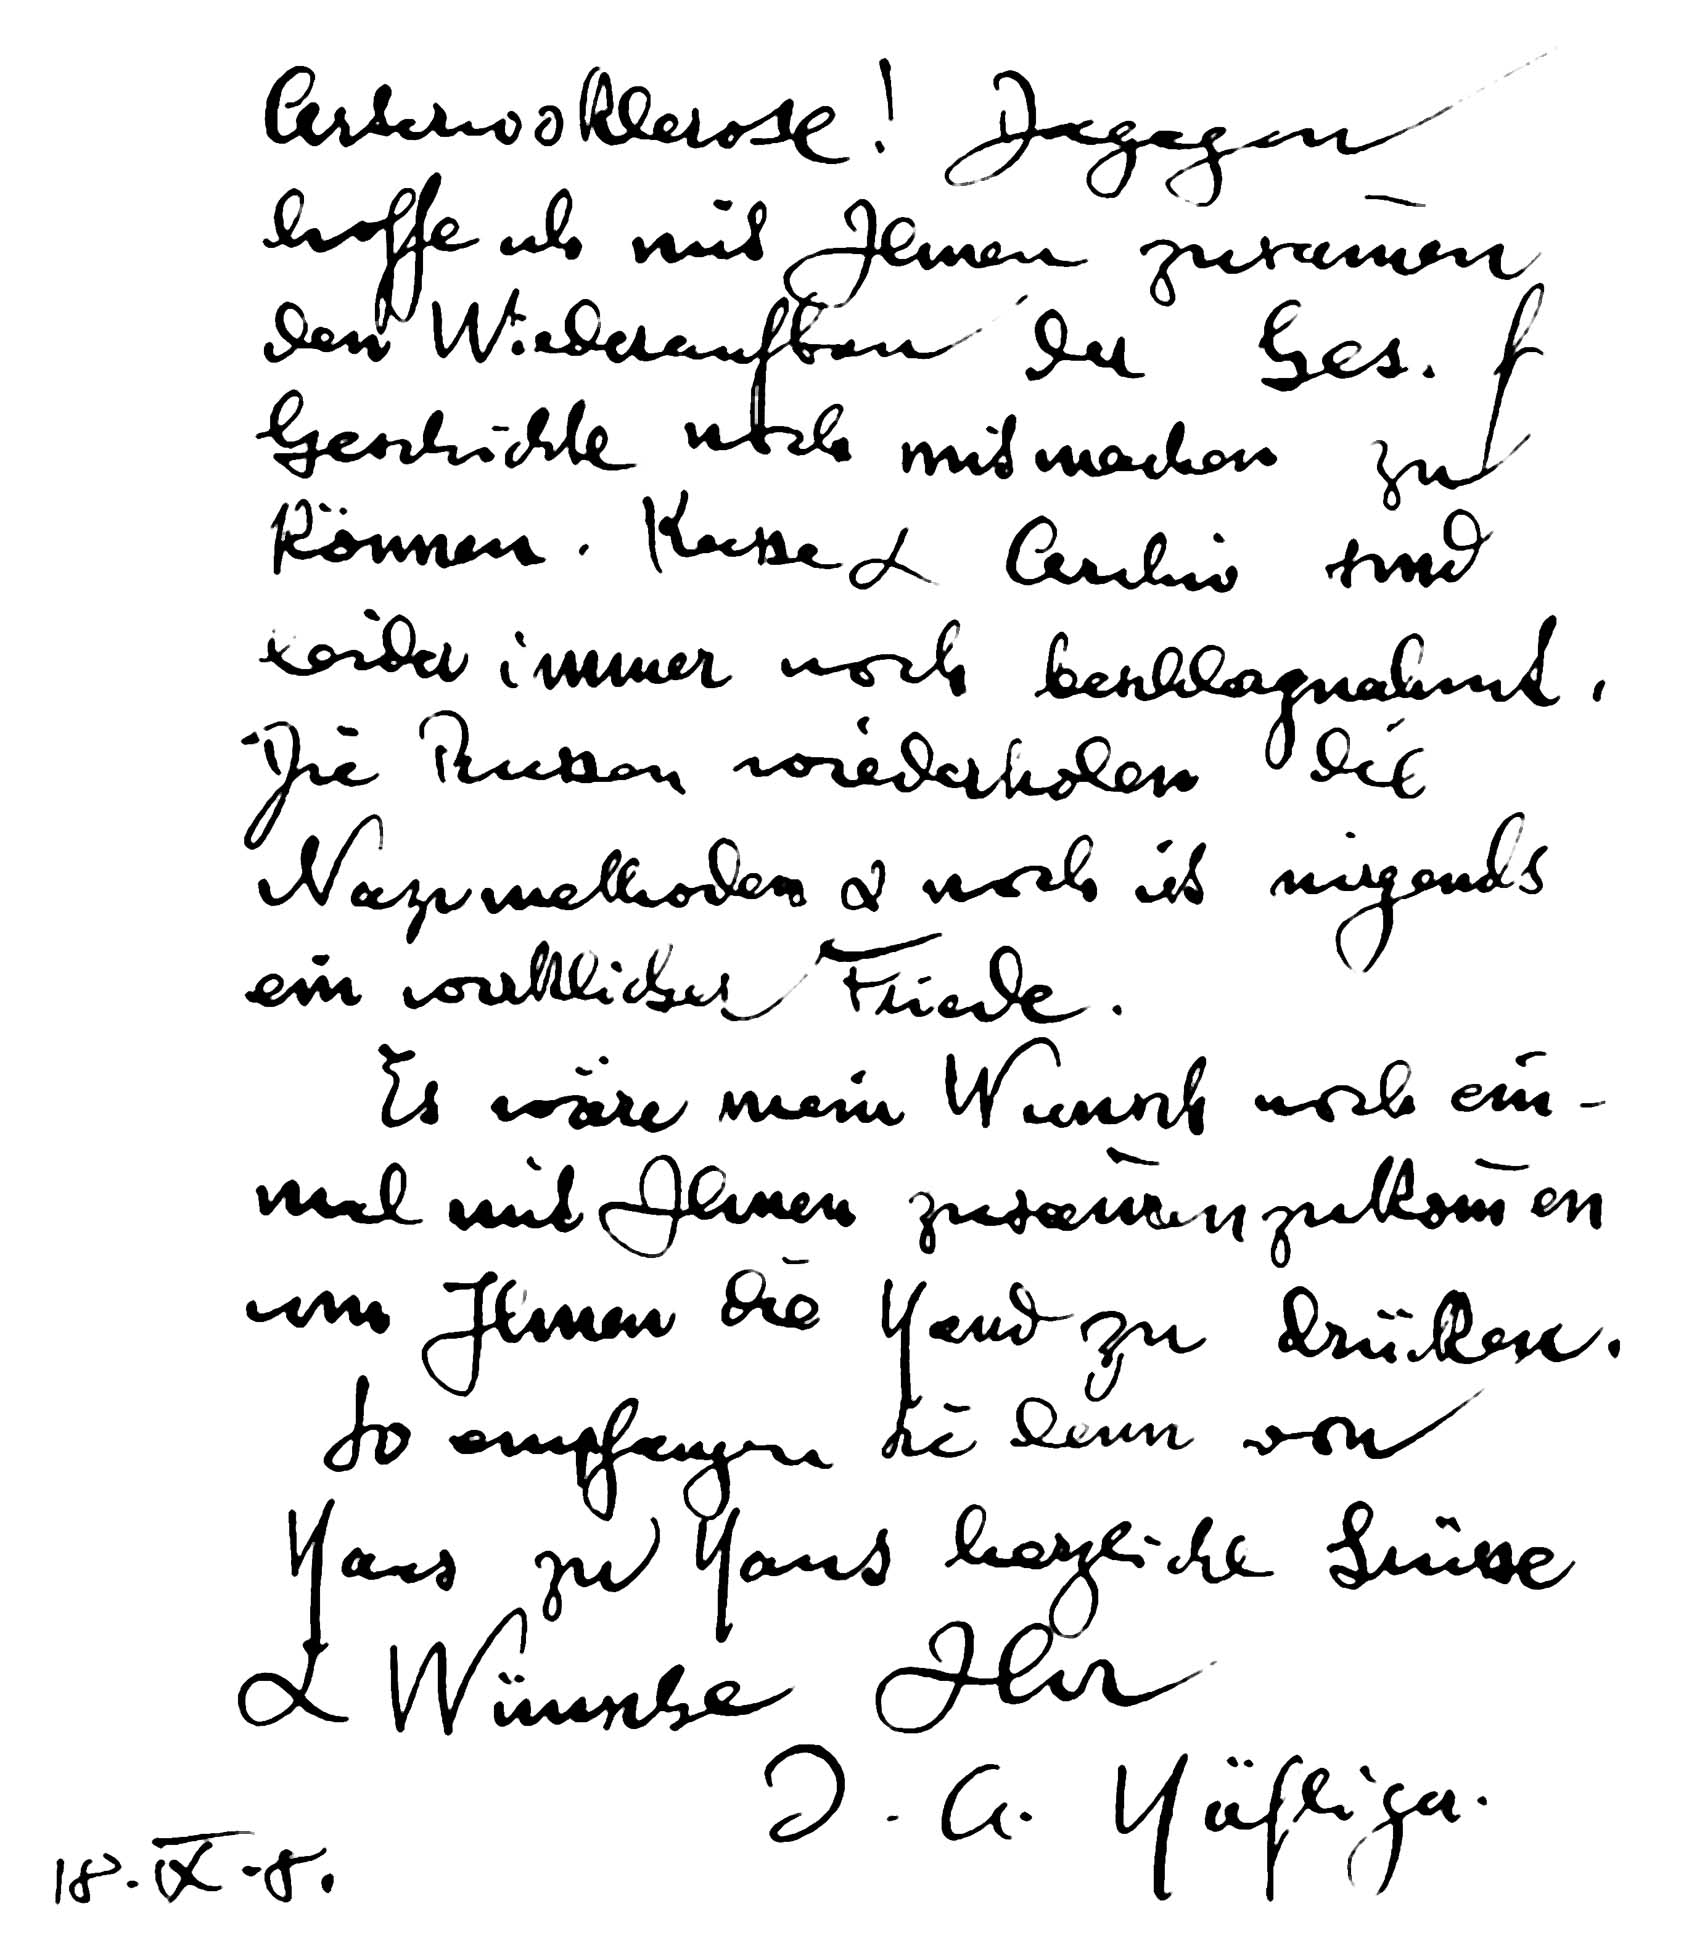 Arteriosklerose! Dagegen
hoffe ich mit Ihnen zusam̄en
den Wiederaufbau der Ges. f
Geschichte noch mitmachen zu
können. Kasse & Archiv sind
leider immer noch beschlagnahmt.
Die Russen wiederholen die
Nazimethoden & noch ist nirgends
ein wirklicher Friede.
Es wäre mein Wunsch noch ein-
mal mit Ihnen zusam̄enzukom̄en
um Ihnen die Hand zu drücken.
So empfangen Sie denn von
Haus zu Haus herzliche Grüsse
& Wünsche Ihr
J. A. Häfliger.
18.IX.8.